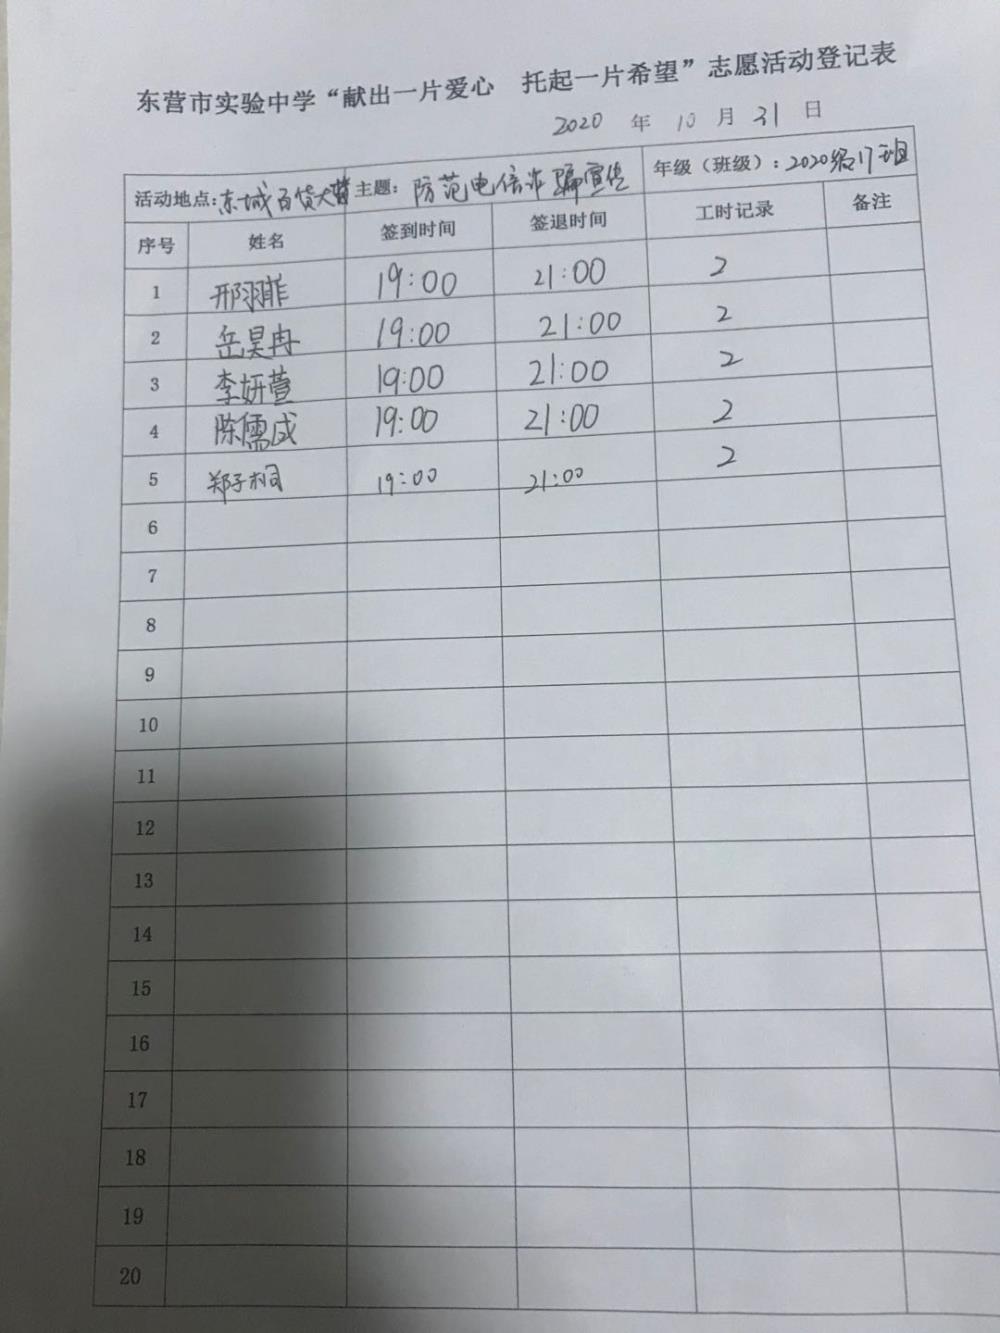 东营市实验中学“献出一片爱心 托起一片希望”志愿活动登记表
2020 年 10 月 31 日
活动地点：东城百货大楼 主题：防范电信诈骗宣传 年级（班级）：2020级17班
序号 姓名 签到时间 签退时间 工时记录 备注
1 邢羽菲 19:00 21:00 2
2 岳昊冉 19:00 21:00 2
3 李妍萱 19:00 21:00 2
4 陈儒成 19:00 21:00 2
5 郑子桐 19:00 21:00 2
6
7
8
9
10
11
12
13
14
15
16
17
18
19
20